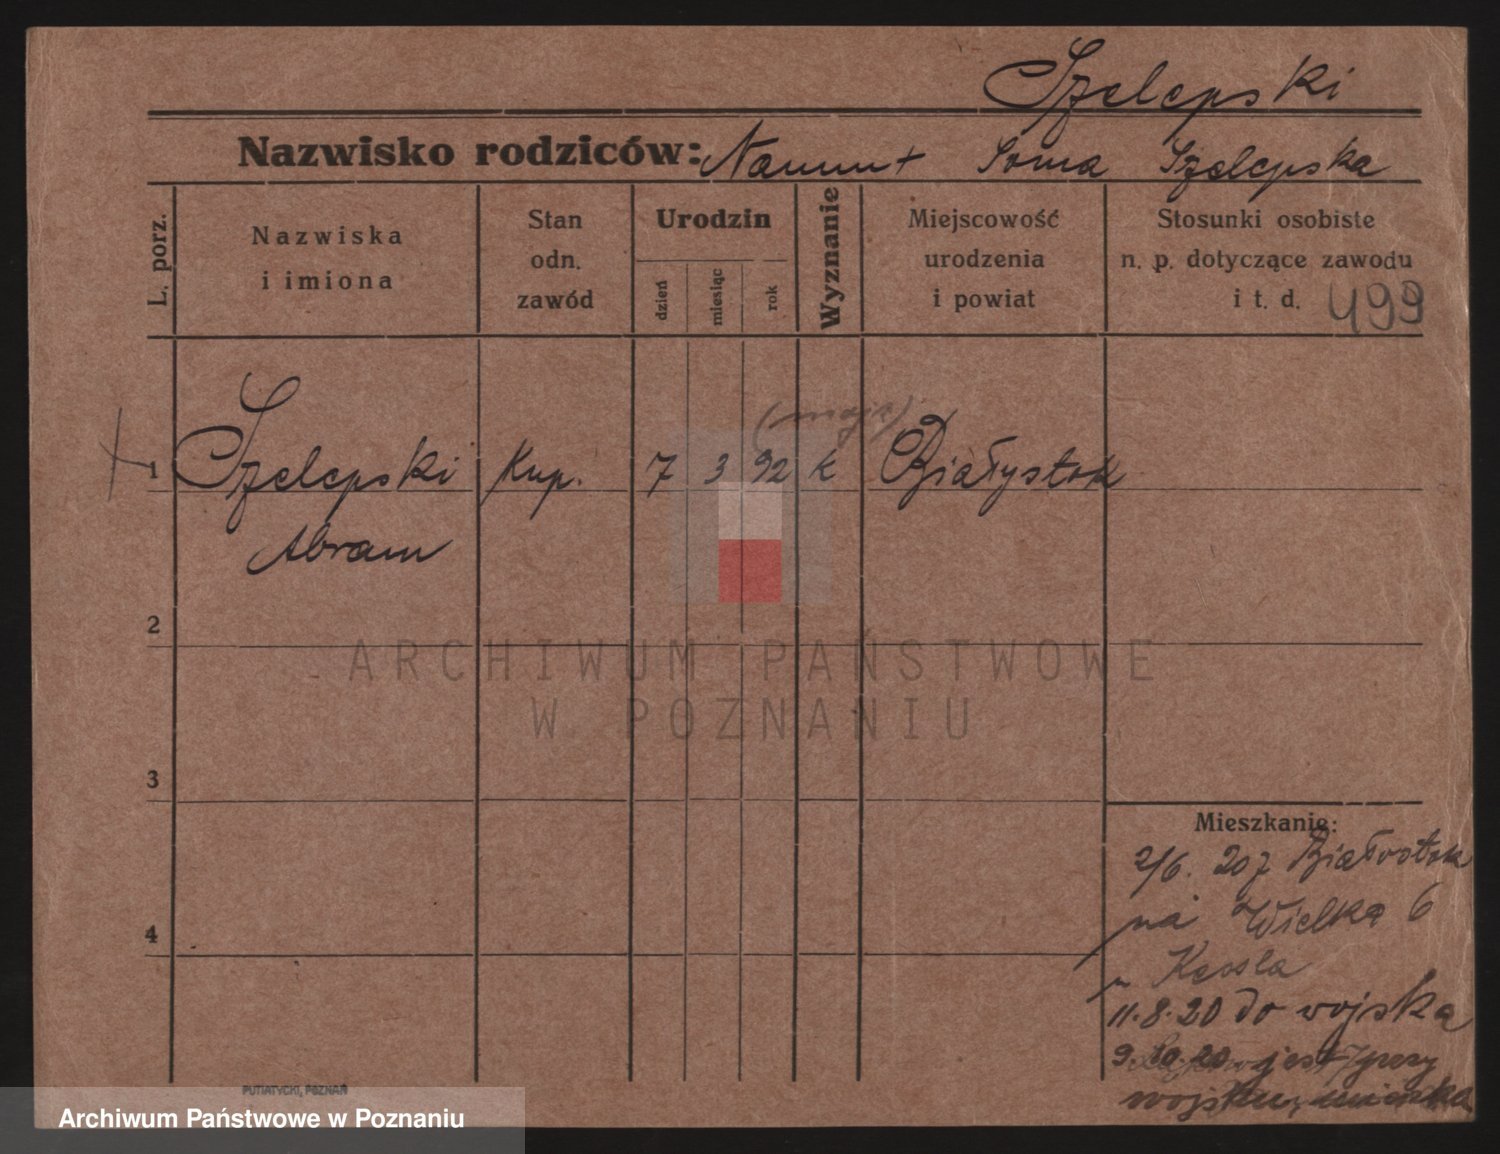 Szelepski
Nazwisko rodziców: Szelepska
L. porz.
Nazwiska
i imiona
Stan
odn.
zawód
Urodzin
dzień
miesiąc
rok
Wyznanie
Miejscowość
urodzenia
i powiat
Stosunki osobiste
n. p. dotyczące zawodu
i t. d. 499
1 Szelepski Kup. 7 3 92 Białystok
Abram
2
ARCHIWUM PAŃSTWOWE
W POZNANIU
3
Mieszkanie:
2/6. 20 z
na Wielką 6
4
u Kessla
11.8.20 do wojska
9.10.20 jest przy
PUTIATYCKI, POZNAŃ
Archiwum Państwowe w Poznaniu